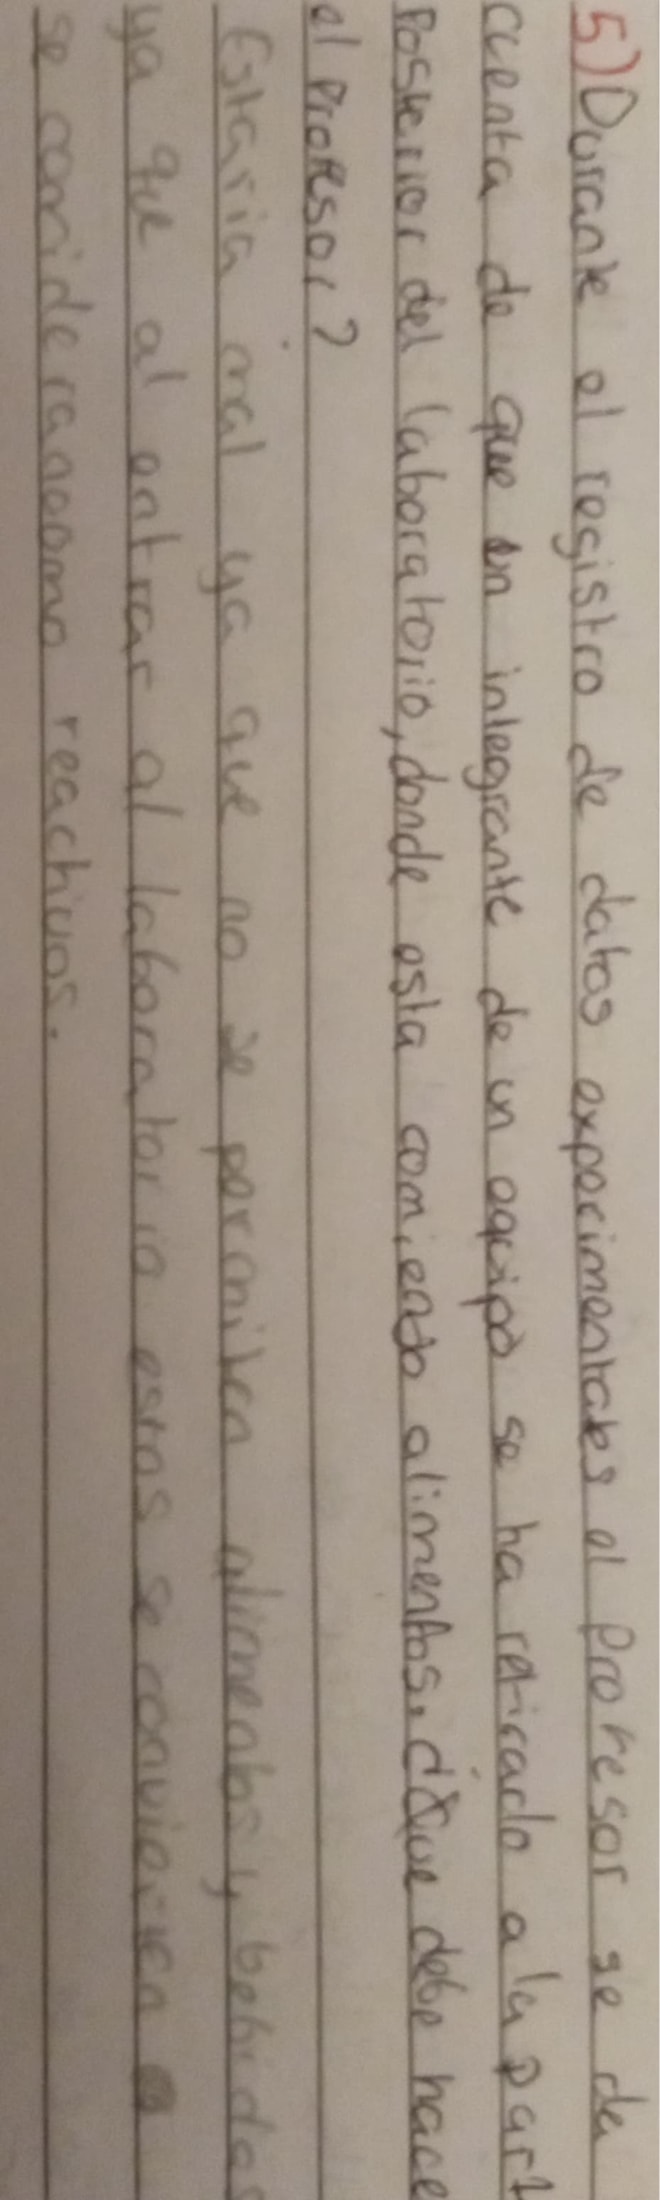 5) Durante el registro de datos experimentales el Profesor se da
cuenta de que un integrante de un equipo se ha retirado a la part
Posterior del laboratorio, donde esta comiendo alimentos. ¿Que debe hace
el Profesor?
Estaria mal ya que no se permiten alimentos y bebidas
ya que al entrar al laboratorio estos se convierten o
se consideran como reactivos.